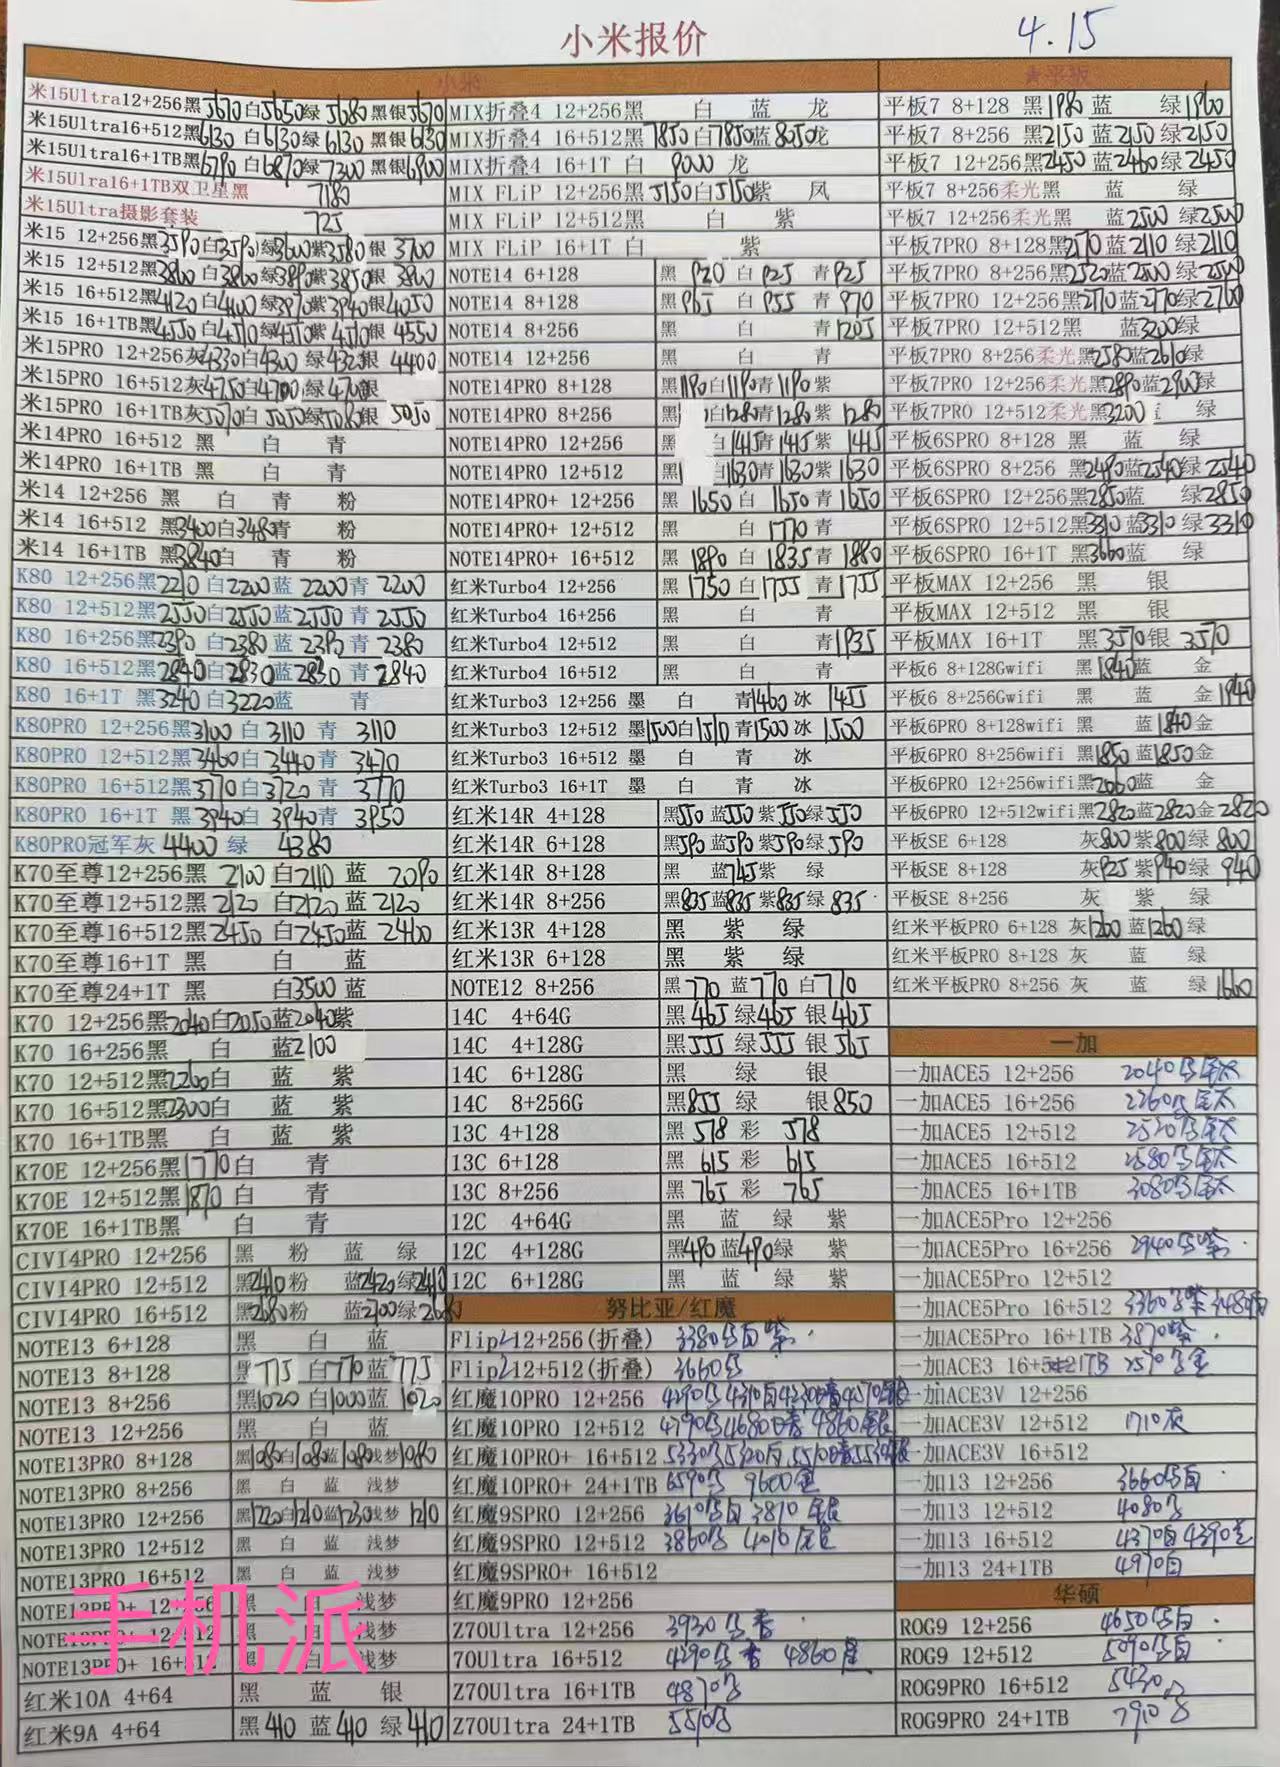 小米报价
4.15
小米
米15Ultra12+256黑5670白5650绿5680黑银5670
米15Ultra16+512黑6130 白6130绿6130 黑银6130
米15Ultra16+1TB黑6790白6870绿7300黑银6900
米15Ulra16+1TB双卫星黑 7180
米15Ultra摄影套装 725
米15 12+256黑3590白3590绿3600紫3580银 3700
米15 12+512黑3860 白3860绿3890紫3850银 3860
米15 16+512黑4120白4100绿3970紫3940银4050
米15 16+1TB黑4550白4510绿4510紫4510银 4550
米15PRO 12+256灰4330白4300 绿4320银 4400
米15PRO 16+512灰4750白4700 绿4700银
米15PRO 16+1TB灰5070白5050绿5080银 5050
米14PRO 16+512 黑 白 青
米14PRO 16+1TB 黑 白 青
米14 12+256 黑 白 青 粉
米14 16+512 黑3400白3480青 粉
米14 16+1TB 黑3840白 青 粉
K80 12+256黑2210白2200蓝 2200青 2200
K80 12+512黑2550白2550蓝2550青 2550
K80 16+256黑2390白2380蓝 2390青 2380
K80 16+512黑2840白2830蓝2830 青2840
K80 16+1T 黑3240白3220蓝 青
K80PRO 12+256黑3100 白 3110 青 3110
K80PRO 12+512黑3460 白3440青 3470
K80PRO 16+512黑3770白3720青 3770
K80PRO 16+1T 黑3940白3940青 3950
K80PRO冠军灰 4400 绿 4380
K70至尊12+256黑 2100 白2110 蓝 2090
K70至尊12+512黑2120 白2120蓝2120
K70至尊16+512黑2450 白2450蓝2460
K70至尊16+1T 黑 白 蓝
K70至尊24+1T 黑 白3500蓝
K70 12+256黑2040白2050蓝2040紫
K70 16+256黑 白 蓝2100
K70 12+512黑2260白 蓝 紫
K70 16+512黑2300白 蓝 紫
K70 16+1TB黑 白 蓝 紫
K70E 12+256黑1770白 青
K70E 12+512黑1870 白 青
K70E 16+1TB黑 白 青
CIVI4PRO 12+256 黑 粉 蓝 绿
CIVI4PRO 12+512 黑2410粉 蓝2420绿2410
CIVI4PRO 16+512 黑2680粉 蓝2700绿2680
NOTE13 6+128 黑 白 蓝
NOTE13 8+128 黑775 白770蓝775
NOTE13 8+256 黑1020 白1000蓝 1020
NOTE13 12+256 黑 白 蓝
NOTE13PRO 8+128 黑1080白1080蓝1080浅梦1080
NOTE13PRO 8+256 黑 白 蓝 浅梦
NOTE13PRO 12+256 黑1220白1210蓝1230浅梦 1210
NOTE13PRO 12+512 黑 白 蓝 浅梦
NOTE13PRO 16+512 黑 白 蓝 浅梦
NOTE13PRO+ 12+256 黑 白 浅梦
NOTE13PRO+ 12+512 黑 白 浅梦
NOTE13PRO+ 16+512 黑 白 浅梦
红米10A 4+64 黑 蓝 银
红米9A 4+64 黑410 蓝410 绿410
MIX折叠4 12+256黑 白 蓝 龙
MIX折叠4 16+512黑7850白7850蓝8050龙
MIX折叠4 16+1T 白 9000 龙
MIX FLiP 12+256黑5150白5150紫 凤
MIX FLiP 12+512黑 白 紫
MIX FLiP 16+1T 白 紫
NOTE14 6+128 黑 920 白 925 青925
NOTE14 8+128 黑965 白 955 青 970
NOTE14 8+256 黑 白 青1205
NOTE14 12+256 黑 白 青
NOTE14PRO 8+128 黑1190白1190青1190紫
NOTE14PRO 8+256 白1280青1280紫 1280
NOTE14PRO 12+256 白1415青1415紫 1415
NOTE14PRO 12+512 黑 白1630青1630紫1630
NOTE14PRO+ 12+256 黑1650白 1650青1650
NOTE14PRO+ 12+512 黑 白 1770青
NOTE14PRO+ 16+512 黑1890白1835青1880
红米Turbo4 12+256 黑 1750 白1755 青1755
红米Turbo4 16+256 黑 白 青
红米Turbo4 12+512 黑 白 青1935
红米Turbo4 16+512 黑 白 青
红米Turbo3 12+256 墨 白 青1460 冰 1455
红米Turbo3 12+512 墨1500白1510青1500冰 1500
红米Turbo3 16+512 墨 白 青 冰
红米Turbo3 16+1T 墨 白 青 冰
红米14R 4+128 黑550蓝550紫550绿550
红米14R 6+128 黑590蓝590紫590绿590
红米14R 8+128 黑 蓝745紫 绿
红米14R 8+256 黑835蓝835紫835绿835
红米13R 4+128 黑 紫 绿
红米13R 6+128 黑 紫 绿
NOTE12 8+256 黑770 蓝770 白770
14C 4+64G 黑465绿465 银465
14C 4+128G 黑555 绿555 银565
14C 6+128G 黑 绿 银
14C 8+256G 黑855 绿 银850
13C 4+128 黑 578 彩 578
13C 6+128 黑 615 彩 615
13C 8+256 黑 765 彩 765
12C 4+64G 黑 蓝 绿 紫
12C 4+128G 黑490蓝490绿 紫
12C 6+128G 黑 蓝 绿 紫
努比亚/红魔
Flip212+256(折叠) 3380 白紫
Flip212+512(折叠) 3660
红魔10PRO 12+256
红魔10PRO 12+512
红魔10PRO+ 16+512
红魔10PRO+ 24+1TB 6590 9600金
红魔9SPRO 12+256 3610 白 3810 银
红魔9SPRO 12+512 3860 4010 银
红魔9SPRO+ 16+512
红魔9PRO 12+256
Z70Ultra 12+256 3930
70Ultra 16+512 4290 4860
Z70Ultra 16+1TB 4870
Z70Ultra 24+1TB 5510
平板7 8+128 黑1980蓝 绿1960
平板7 8+256 黑2150 蓝2150绿2150
平板7 12+256黑2450 蓝2460绿2450
平板7 8+256柔光黑 蓝 绿
平板7 12+256柔光黑 蓝2500 绿2500
平板7PRO 8+128黑2170蓝2110 绿2110
平板7PRO 8+256黑2520蓝2500 绿2500
平板7PRO 12+256黑2770蓝2770绿2760
平板7PRO 12+512黑 蓝3200绿
平板7PRO 8+256柔光黑2580蓝2610绿
平板7PRO 12+256柔光黑2890蓝2900绿
平板7PRO 12+512柔光黑3200 绿
平板6SPRO 8+128 黑 蓝 绿
平板6SPRO 8+256 黑2490蓝2540绿2540
平板6SPRO 12+256黑2850蓝 绿2850
平板6SPRO 12+512黑3310 蓝3310 绿3310
平板6SPRO 16+1T 黑3660蓝 绿
平板MAX 12+256 黑 银
平板MAX 12+512 黑 银
平板MAX 16+1T 黑3570银 3570
平板6 8+128Gwifi 黑1840蓝 金
平板6 8+256Gwifi 黑 蓝 金1940
平板6PRO 8+128wifi 黑 蓝1840金
平板6PRO 8+256wifi 黑1850蓝1850金
平板6PRO 12+256wifi黑2060蓝 金
平板6PRO 12+512wifi黑2820蓝2820金2820
平板SE 6+128 灰800紫800绿 800
平板SE 8+128 灰925紫940绿 940
平板SE 8+256 灰 紫 绿
红米平板PRO 6+128 灰1260蓝1260绿
红米平板PRO 8+128 灰 蓝 绿
红米平板PRO 8+256 灰 蓝 绿1660
一加
一加ACE5 12+256 2040 钛
一加ACE5 16+256 2260 钛
一加ACE5 12+512 2520 钛
一加ACE5 16+512 2580 钛
一加ACE5 16+1TB 3080 钛
一加ACE5Pro 12+256
一加ACE5Pro 16+256 2940 紫
一加ACE5Pro 12+512
一加ACE5Pro 16+512 3360 紫 3480白
一加ACE5Pro 16+1TB 3870紫
一加ACE3 1TB 2570 金
一加ACE3V 12+256
一加ACE3V 12+512 1710灰
一加ACE3V 16+512
一加13 12+256 3660 白
一加13 12+512 4080
一加13 16+512 4370白 4390蓝
一加13 24+1TB 4970白
华硕
ROG9 12+256 4650 白
ROG9 12+512 5090 白
ROG9PRO 16+512 5430
ROG9PRO 24+1TB 7910
手机派